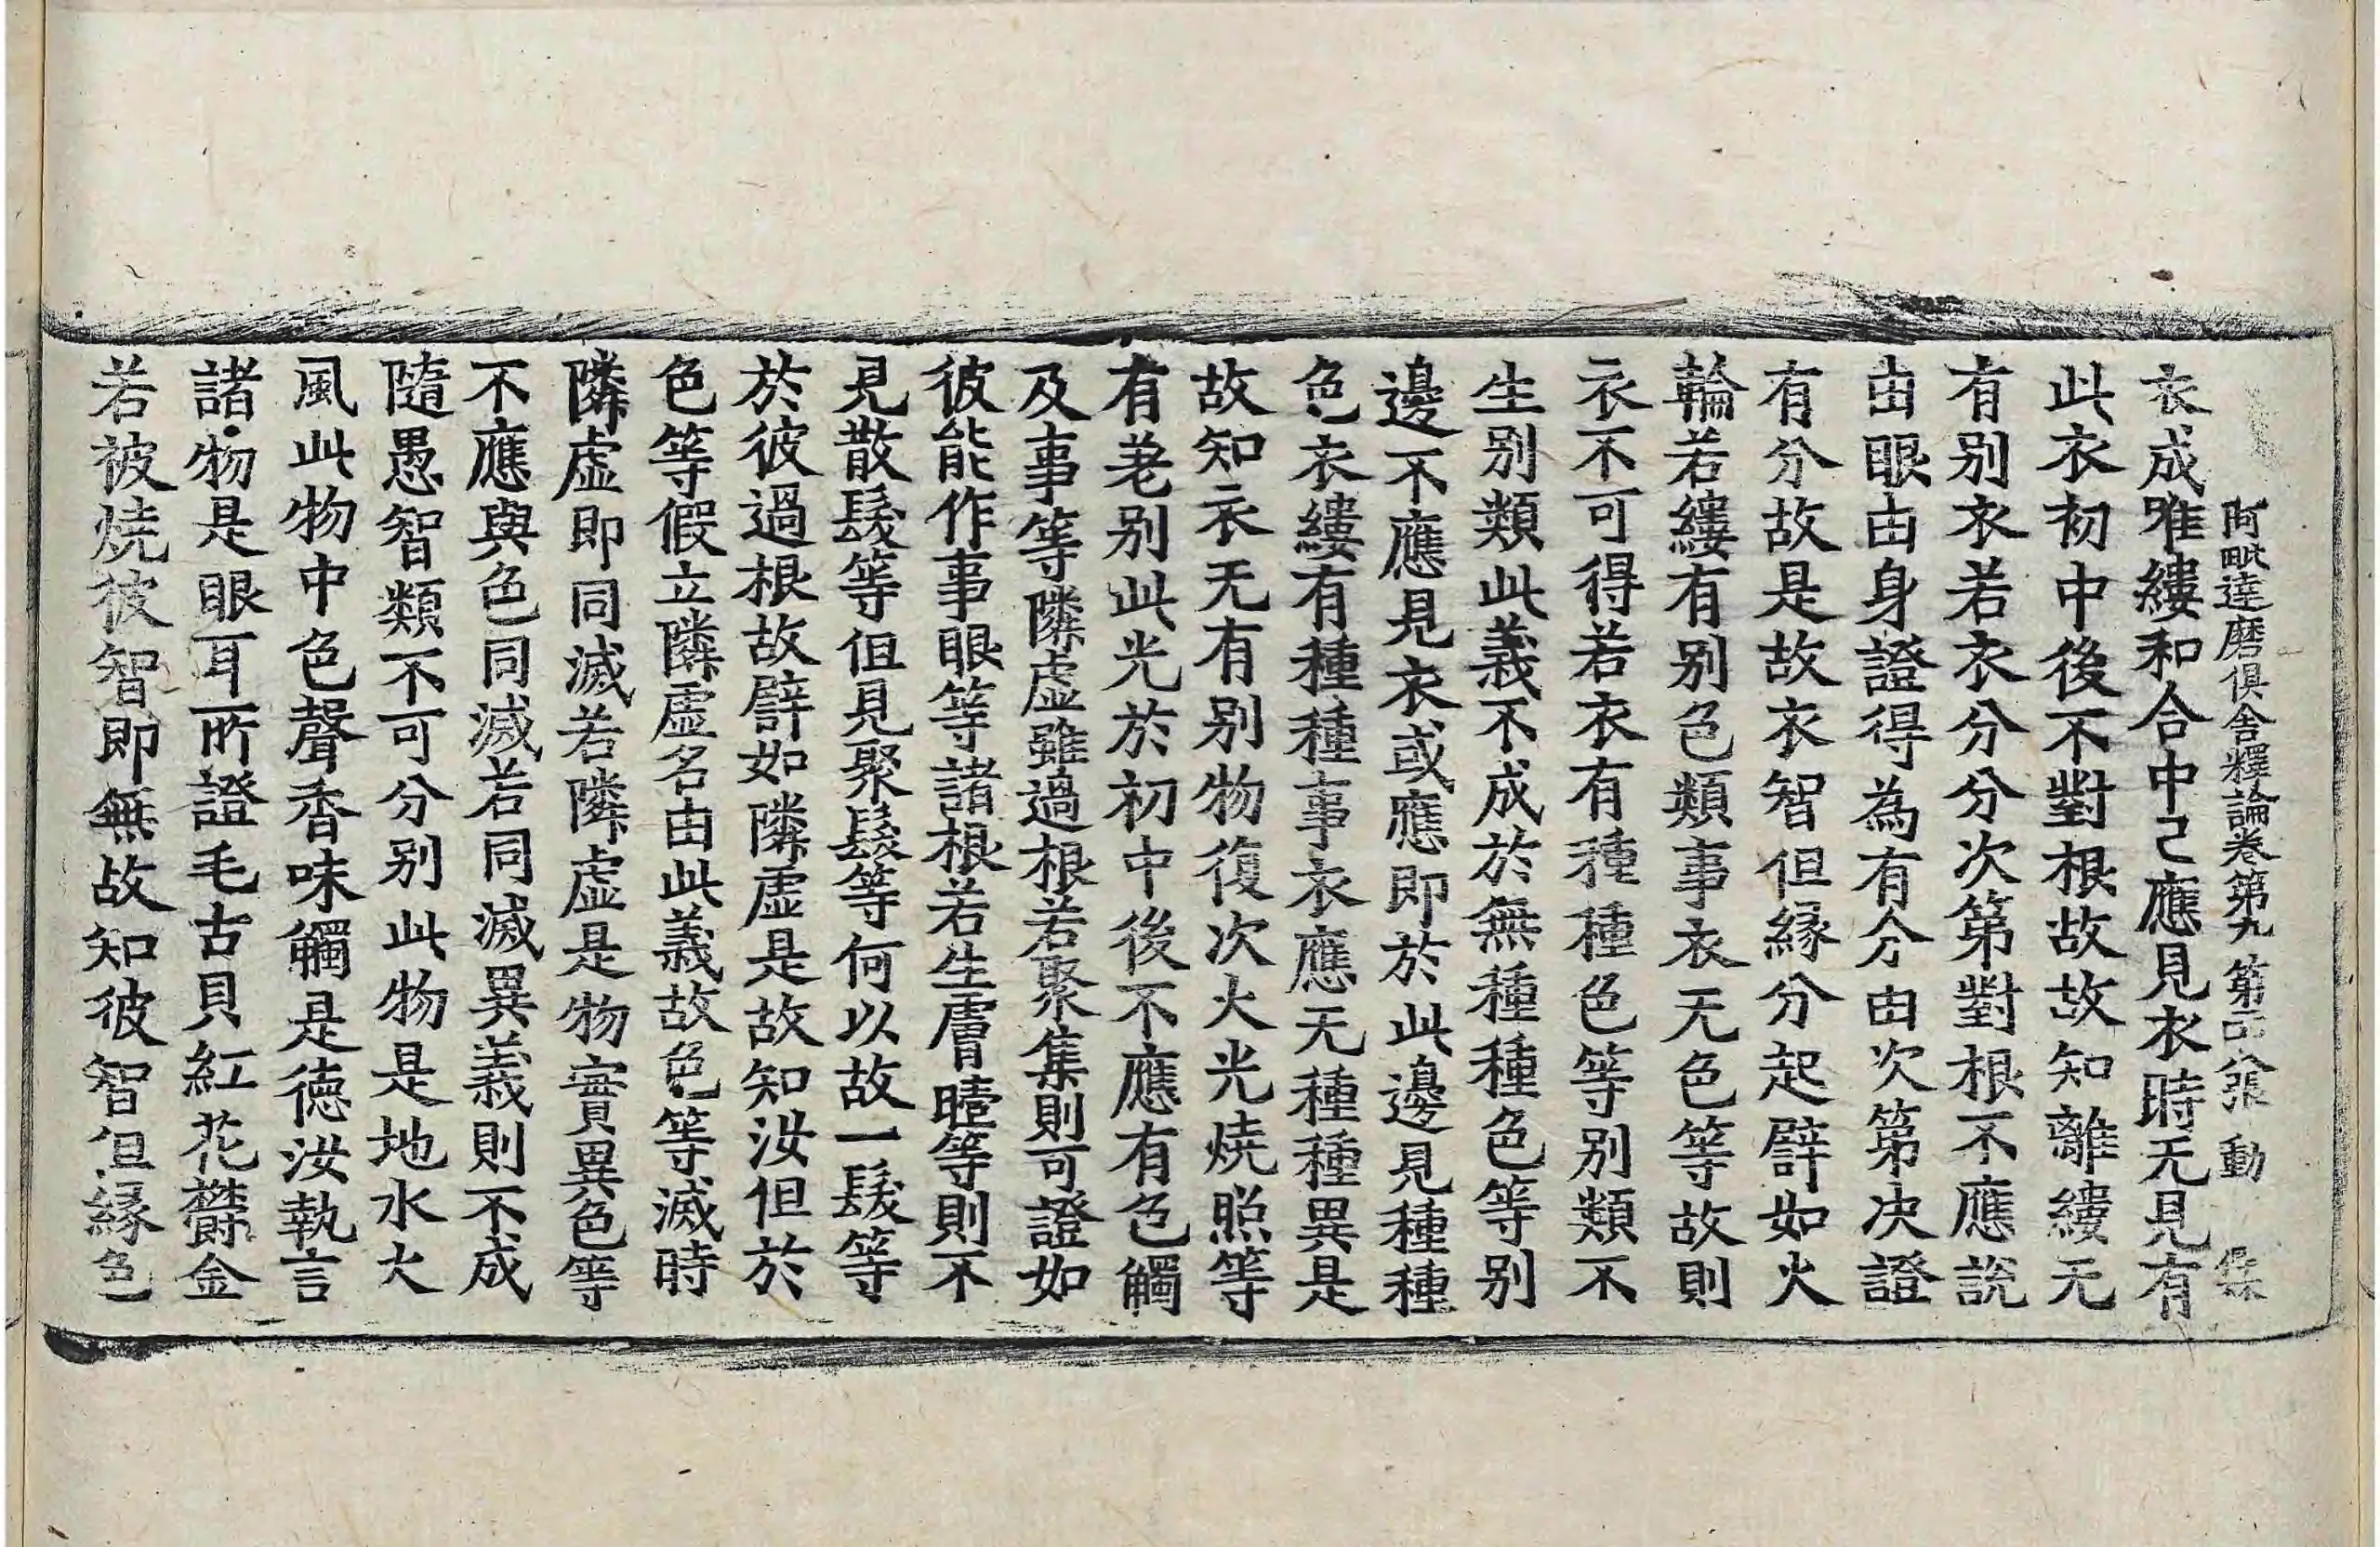 阿毗達磨俱舍釋論卷第九 第二八張 動 集
衣成唯縷和合中已應見衣時无見有
此衣初中後不對根故故知離縷无
有別衣若衣分分次第對根不應說
由眼由身證得為有分由次第决證
有分故是故衣智但緣分起譬如火
輪若縷有別色類事衣无色等故則
衣不可得若衣有種種色等別類不
生別類此義不成於無種種色等別
邊不應見衣或應即於此邊見種種
色衣縷有種種事衣應无種種異是
故知衣无有別物復次火光燒照等
有差別此光於初中後不應有色觸
及事等隣虛雖過根若聚集則可證如
彼能作事眼等諸根若生膚瞖等則不
見散髮等但見聚髮等何以故一髮等
於彼過根故譬如隣虛是故知汝但於
色等假立隣虛名由此義故色等滅時
隣虛即同滅若隣虛是物實異色等
不應與色同滅若同滅異義則不成
隨愚智類不可分別此物是地水火
風此物中色聲香味觸是德汝執言
諸物是眼耳所證毛古貝紅花欝金
若被燒彼智即無故知彼智但緣色